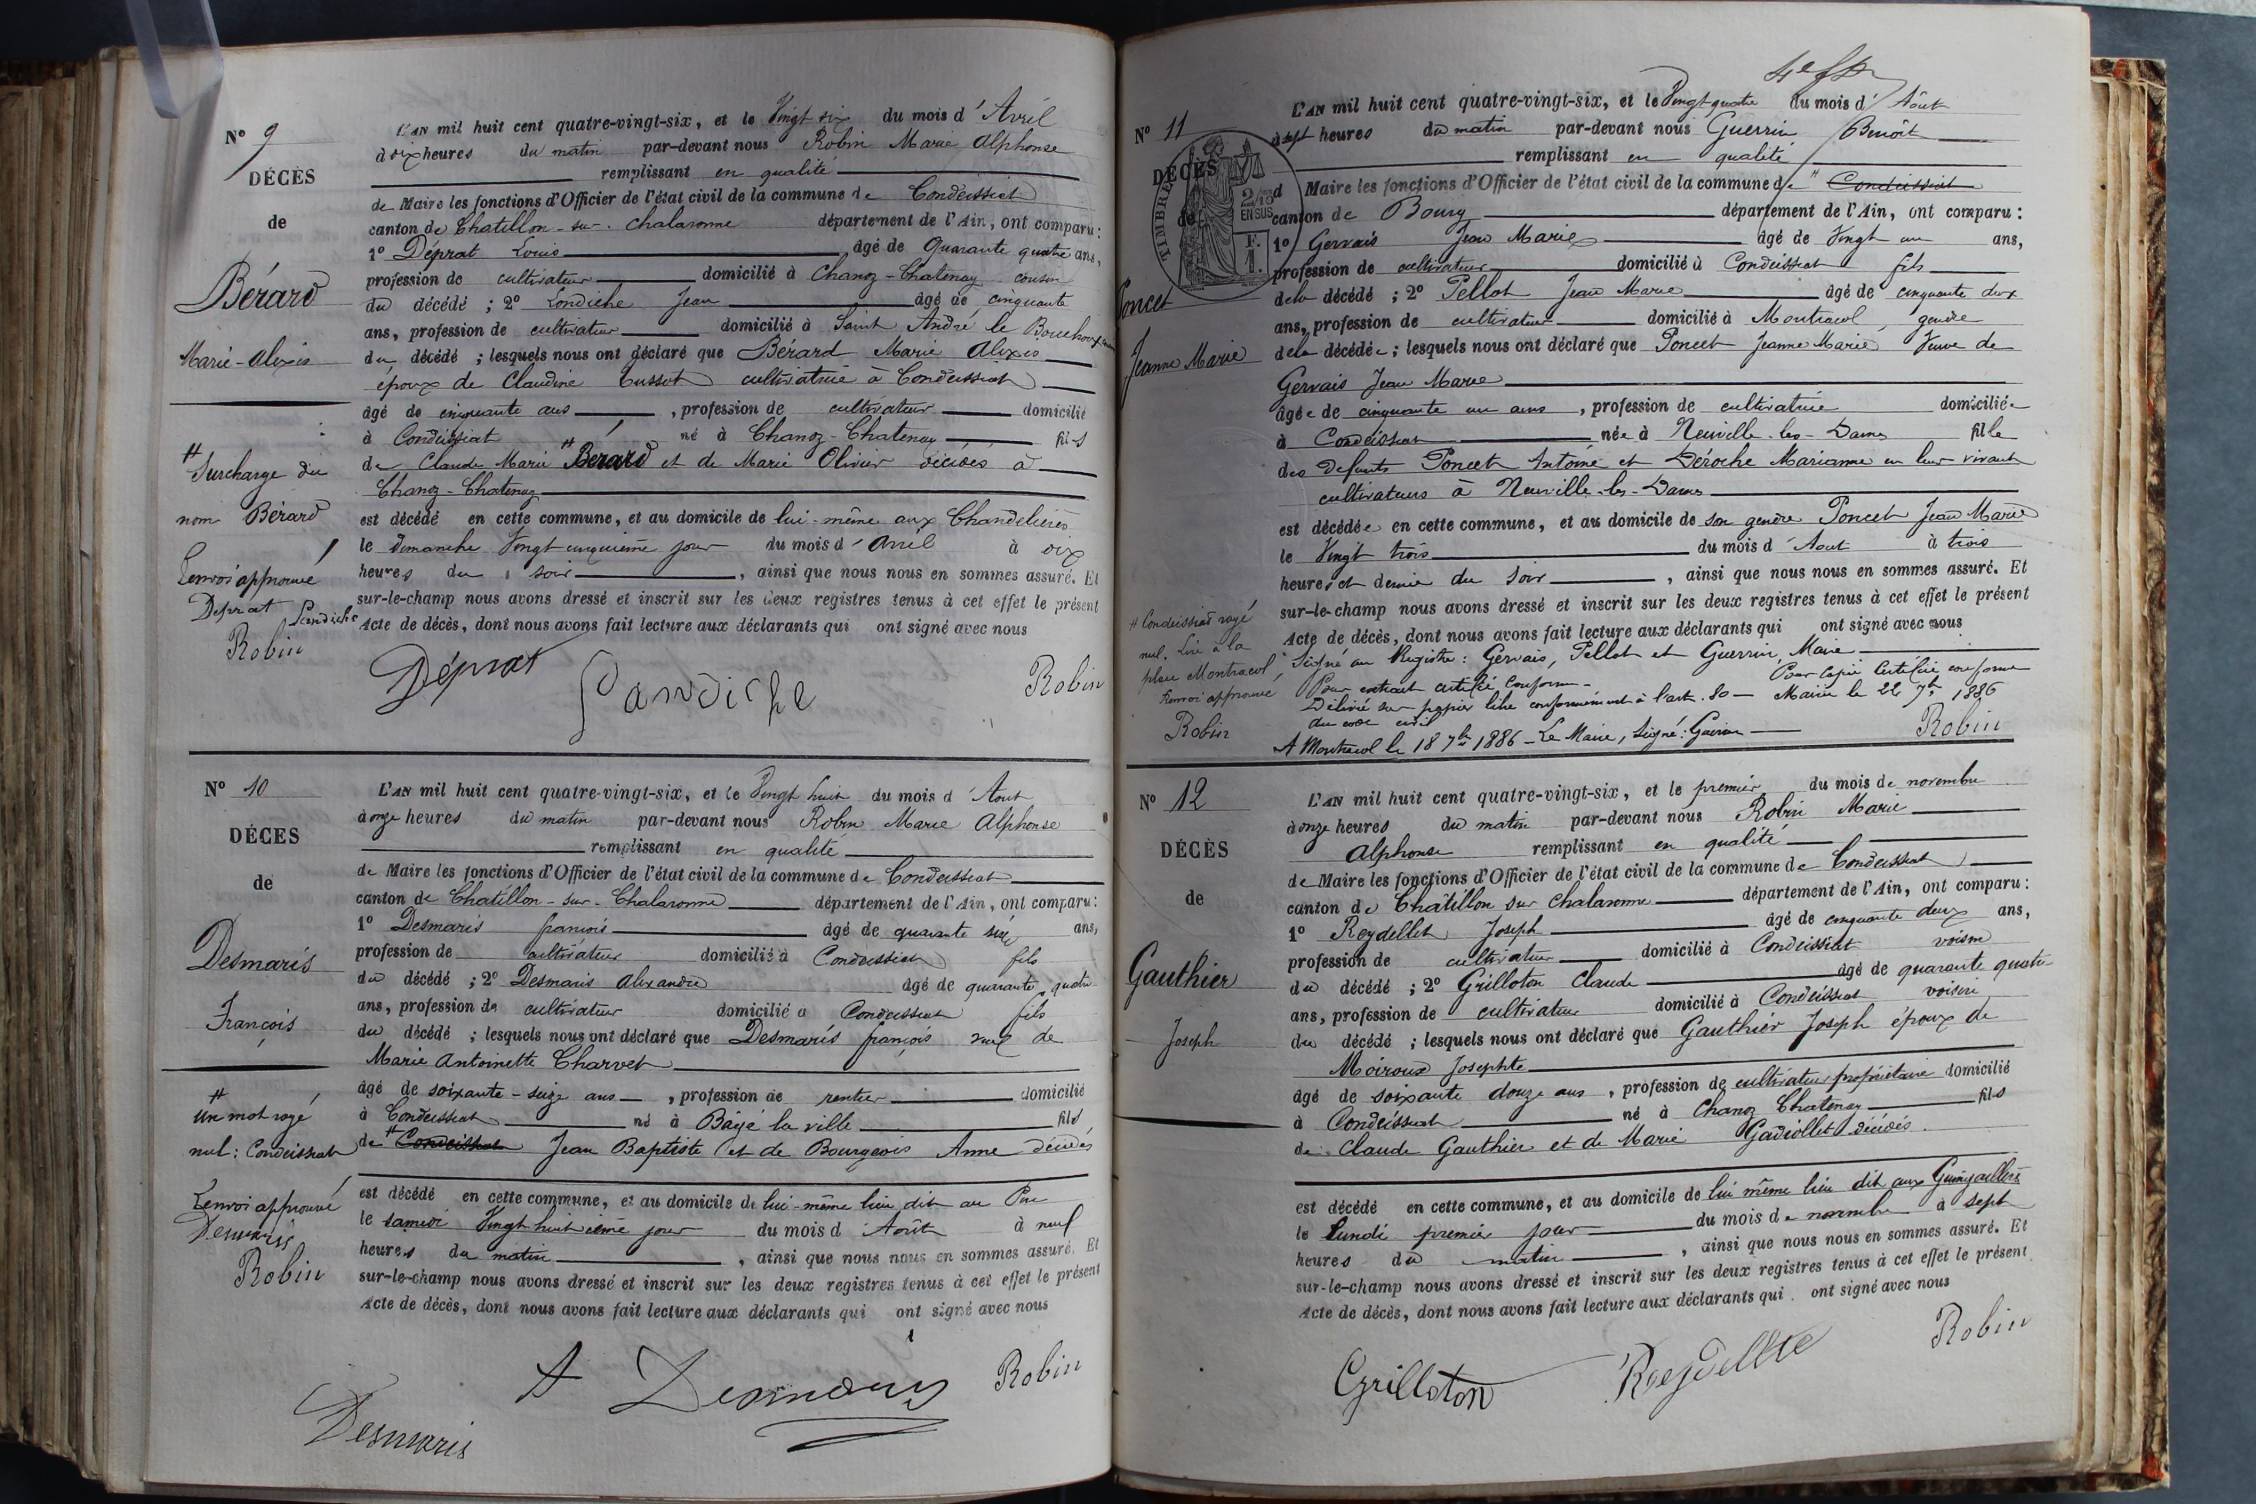 N° 9
DÉCÈS
de
Bérard
Marie-Alexis
# Surcharge du
nom Bérard
Renvoi approuvé
Déprat Landiche
Robin
L'AN mil huit cent quatre-vingt-six, et le Vingt six du mois d'Avril
à dix heures du matin par-devant nous Robin Marie Alphonse
remplissant en qualité
de Maire les fonctions d'Officier de l'état civil de la commune de Condeissiat
canton de Chatillon-sur-Chalaronne département de l'Ain, ont comparu:
1° Déprat Louis âgé de quarante quatre ans,
profession de cultivateur domicilié à Chanoz-Chatenay cousin
du décédé ; 2° Landiche Jean âgé de cinquante
ans, profession de cultivateur domicilié à Saint André le Bouchoux
du décédé ; lesquels nous ont déclaré que Bérard Marie Alexis
époux de Claudine Cusset cultivatrice à Condeissiat
âgé de cinquante ans, profession de cultivateur domicilié
à Condeissiat né à Chanoz-Chatenay fils
de Claude Marie # Bérard et de Marie Olivier décédés à
Chanoz-Chatenay
est décédé en cette commune, et au domicile de lui-même aux Chandelières
le dimanche Vingt cinquième jour du mois d'Avril à dix
heures du soir, ainsi que nous nous en sommes assuré. Et
sur-le-champ nous avons dressé et inscrit sur les deux registres tenus à cet effet le présent
Acte de décès, dont nous avons fait lecture aux déclarants qui ont signé avec nous
Déprat Landiche Robin
N° 10
DÉCÈS
de
Desmaris
François
# un mot rayé
nul: Condeissiat
Renvoi approuvé
Desmaris
Robin
L'AN mil huit cent quatre-vingt-six, et le Vingt huit du mois d'Aout
à onze heures du matin par-devant nous Robin Marie Alphonse
remplissant en qualité
de Maire les fonctions d'Officier de l'état civil de la commune de Condeissiat
canton de Chatillon-sur-Chalaronne département de l'Ain, ont comparu:
1° Desmaris françois âgé de quarante six ans,
profession de cultivateur domicilié à Condeissiat fils
du décédé ; 2° Desmaris Alexandre âgé de quarante quatre
ans, profession de cultivateur domicilié à Condeissiat fils
du décédé ; lesquels nous ont déclaré que Desmaris françois veuf de
Marie Antoinette Charvet
âgé de soixante-seize ans, profession de rentier domicilié
à Condeissiat né à Bâgé la ville fils
de # Condeissiat Jean Baptiste et de Bourgeois Anne décédés
est décédé en cette commune, et au domicile de lui-même lieu dit au
le samedi Vingt huitième jour du mois d'Août à neuf
heures du matin, ainsi que nous nous en sommes assuré. Et
sur-le-champ nous avons dressé et inscrit sur les deux registres tenus à cet effet le présent
Acte de décès, dont nous avons fait lecture aux déclarants qui ont signé avec nous
Desmaris A Desmaris Robin
N° 11
DÉCÈS
de
Poncet
Jeanne Marie
# Condeissiat rayé
nul. Lire à la
place Montracol
Renvoi approuvé
Robin
TIMBRE
2/10
EN SUS
F.
1.
L'AN mil huit cent quatre-vingt-six, et le Vingt quatre du mois d'Aôut
à sept heures du matin par-devant nous Guerrin Benoît
remplissant en qualité
d Maire les fonctions d'Officier de l'état civil de la commune de # Condeissiat
canton de Bourg département de l'Ain, ont comparu:
1° Gervais Jean Marie âgé de Vingt un ans,
profession de cultivateur domicilié à Condeissiat fils
de la décédé ; 2° Pellot Jean Marie âgé de cinquante deux
ans, profession de cultivateur domicilié à Montracol gendre
de la décédée ; lesquels nous ont déclaré que Poncet Jeanne Marie Veuve de
Gervais Jean Marie
âgée de cinquante un ans, profession de cultivatrice domiciliée
à Condeissiat née à Neuville-les-Dames fille
des defunts Poncet Antoine et Déroche Marianne en leur vivant
cultivateurs à Neuville-les-Dames
est décédée en cette commune, et au domicile de son gendre Poncet Jean Marie
le Vingt trois du mois d'Aout à trois
heures et demie du soir, ainsi que nous nous en sommes assuré. Et
sur-le-champ nous avons dressé et inscrit sur les deux registres tenus à cet effet le présent
Acte de décès, dont nous avons fait lecture aux déclarants qui ont signé avec nous
Signé au Registre: Gervais, Pellot et Guerrin, Maire
Pour extrait certifié conforme Pour copie certifiée conforme
Délivré sur papier libre conformément à l'art. 80 Mairie le 22 7bre 1886
du code civil
A Montracol le 18 7bre 1886 - Le Maire, Signé: Guerrin Robin
N° 12
DÉCÈS
de
Gauthier
Joseph
L'AN mil huit cent quatre-vingt-six, et le premier du mois de novembre
à onze heures du matin par-devant nous Robin Marie
Alphonse remplissant en qualité
de Maire les fonctions d'Officier de l'état civil de la commune de Condeissiat
canton de Châtillon sur Chalaronne département de l'Ain, ont comparu:
1° Reydellet Joseph âgé de cinquante deux ans,
profession de cultivateur domicilié à Condeissiat voisin
du décédé ; 2° Grilloton Claude âgé de quarante quatre
ans, profession de cultivateur domicilié à Condeissiat voisin
du décédé ; lesquels nous ont déclaré que Gauthier Joseph époux de
Moiroux Josephte
âgé de soixante douze ans, profession de cultivateur propriétaire domicilié
à Condeissiat né à Chanoz Chatenay fils
de Claude Gauthier et de Marie Gadiollet décédés.
est décédé en cette commune, et au domicile de lui même lieu dit aux
le lundi premier jour du mois de novembre à sept
heures du matin, ainsi que nous nous en sommes assuré. Et
sur-le-champ nous avons dressé et inscrit sur les deux registres tenus à cet effet le présent
Acte de décès, dont nous avons fait lecture aux déclarants qui ont signé avec nous
Grilloton Reydellet Robin